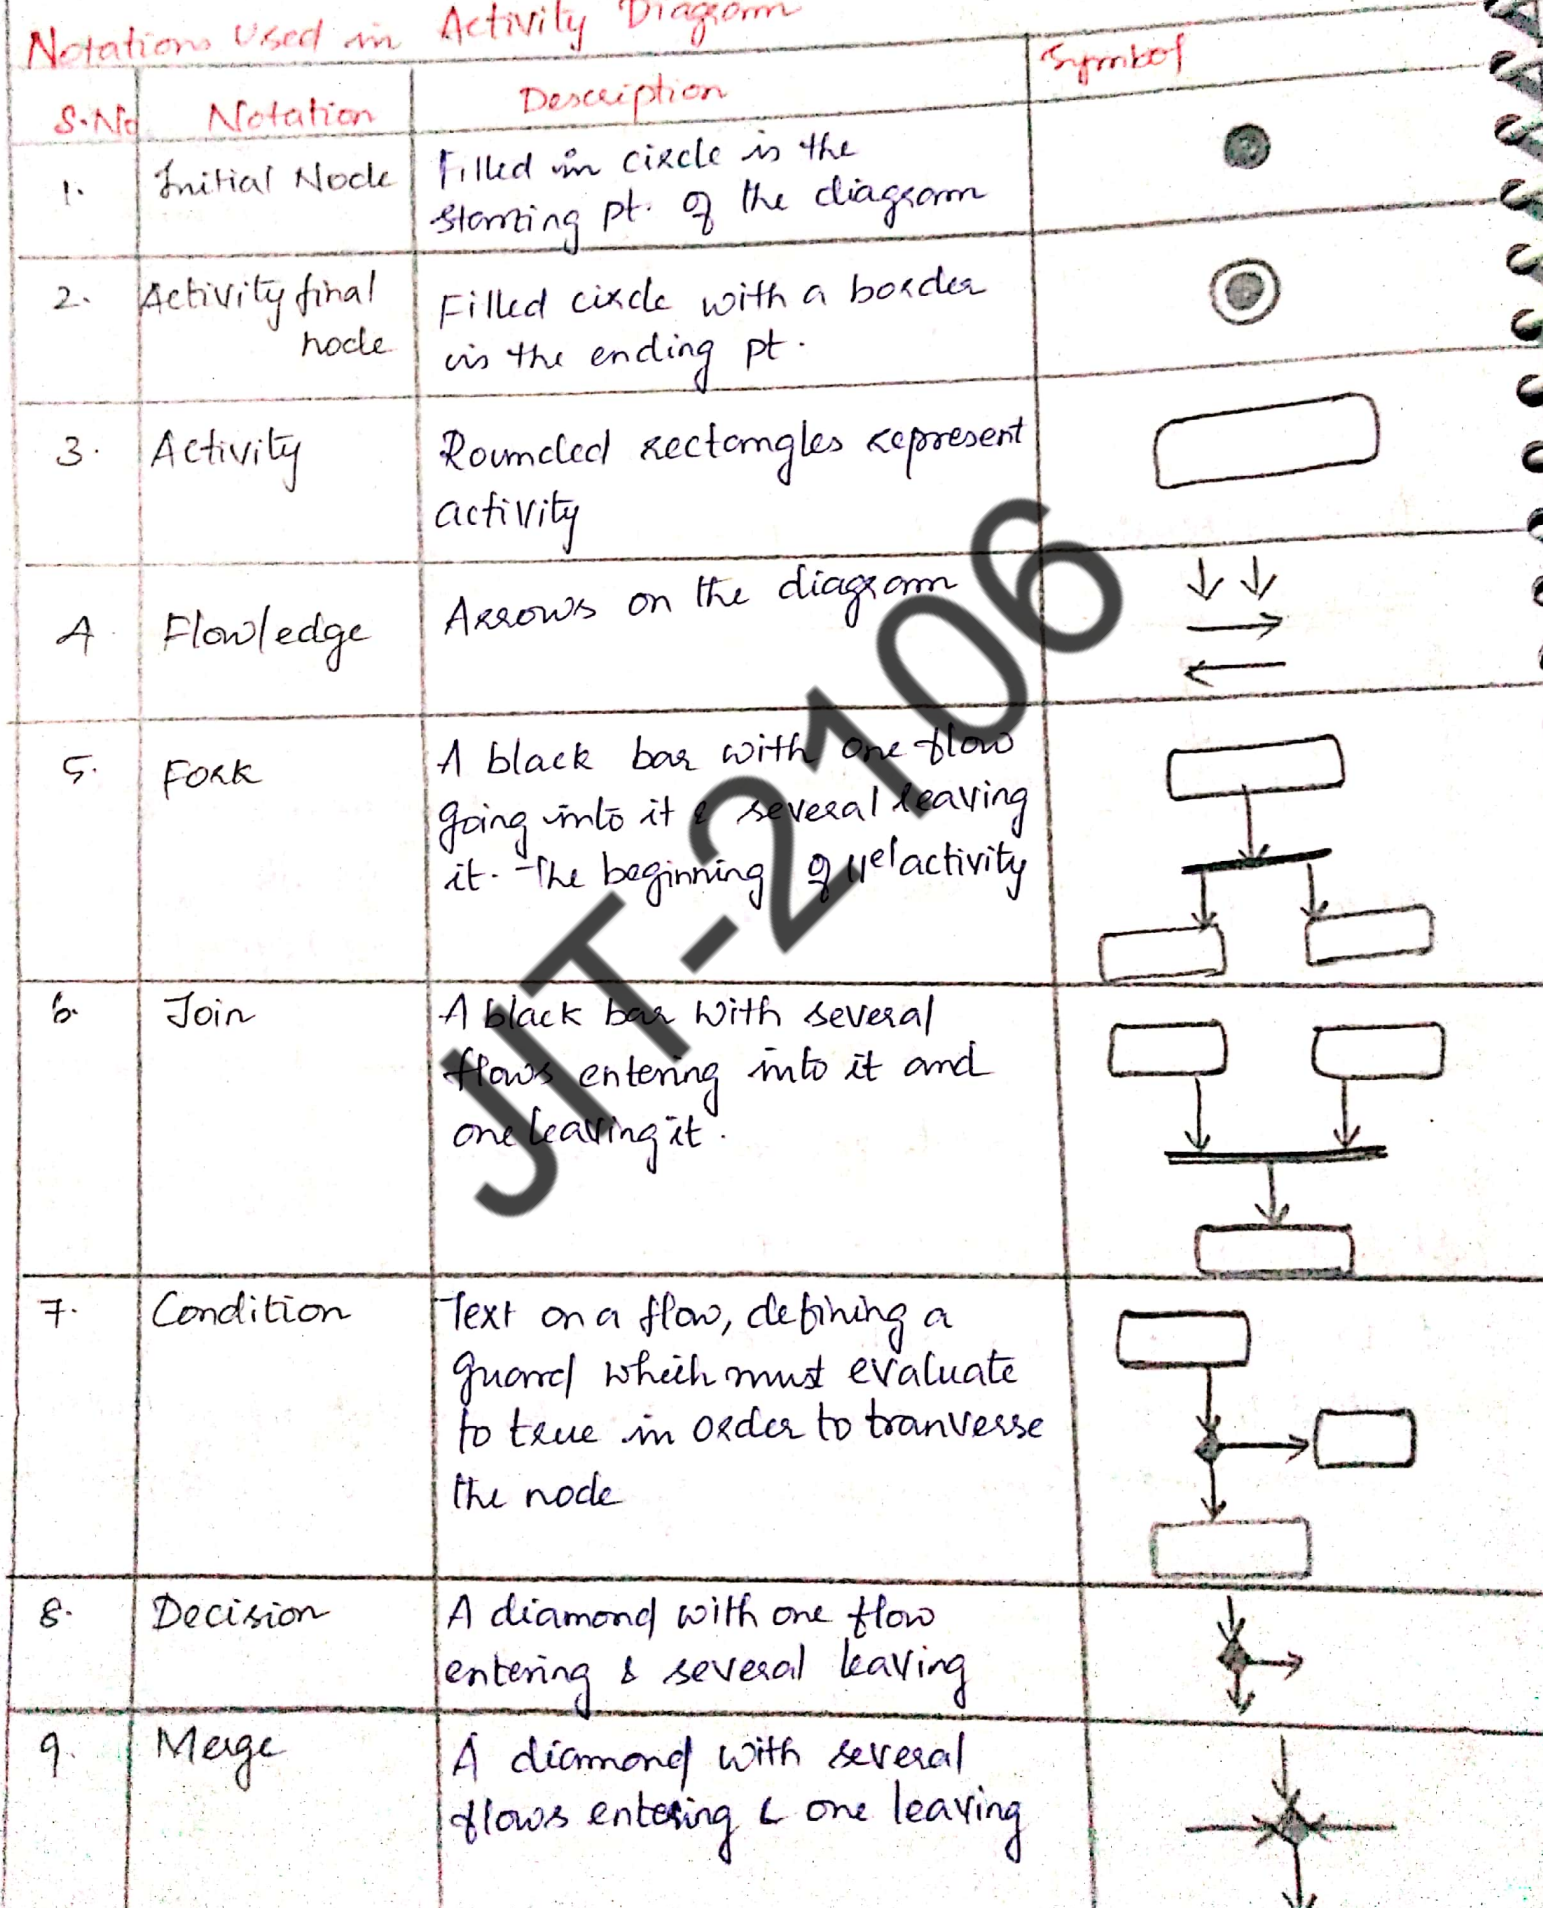 Notations Used in Activity Diagram
S.No Notation Description Symbol
1. Initial Node Filled in circle is the
starting pt. of the diagram
2. Activity final Filled circle with a border
node is the ending pt.
3. Activity Rounded rectangles represent
activity
4 Flow/edge Arrows on the diagram
5. Fork A black bar with one flow
going into it & several leaving
it. The beginning of ||el activity
6. Join A black bar with several
flows entering into it and
one leaving it.
7. Condition Text on a flow, defining a
guard which must evaluate
to true in order to tranverse
the node
8. Decision A diamond with one flow
entering & several leaving
9. Merge A diamond with several
flows entering & one leaving
JIT-2106